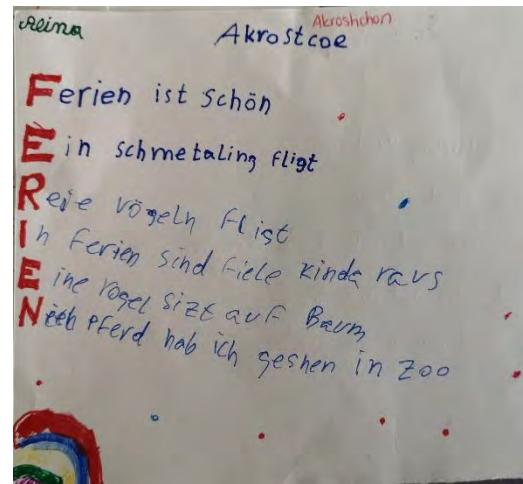 Alina
Akroshchon
Akrostcoe
Ferien ist schön
Ein schmetaling fligt
Reie vögeln fligt
In Ferien sind fiele kinda raus
Eine vogel sizt auf Baum
Pferd hab ich geshen in Zoo